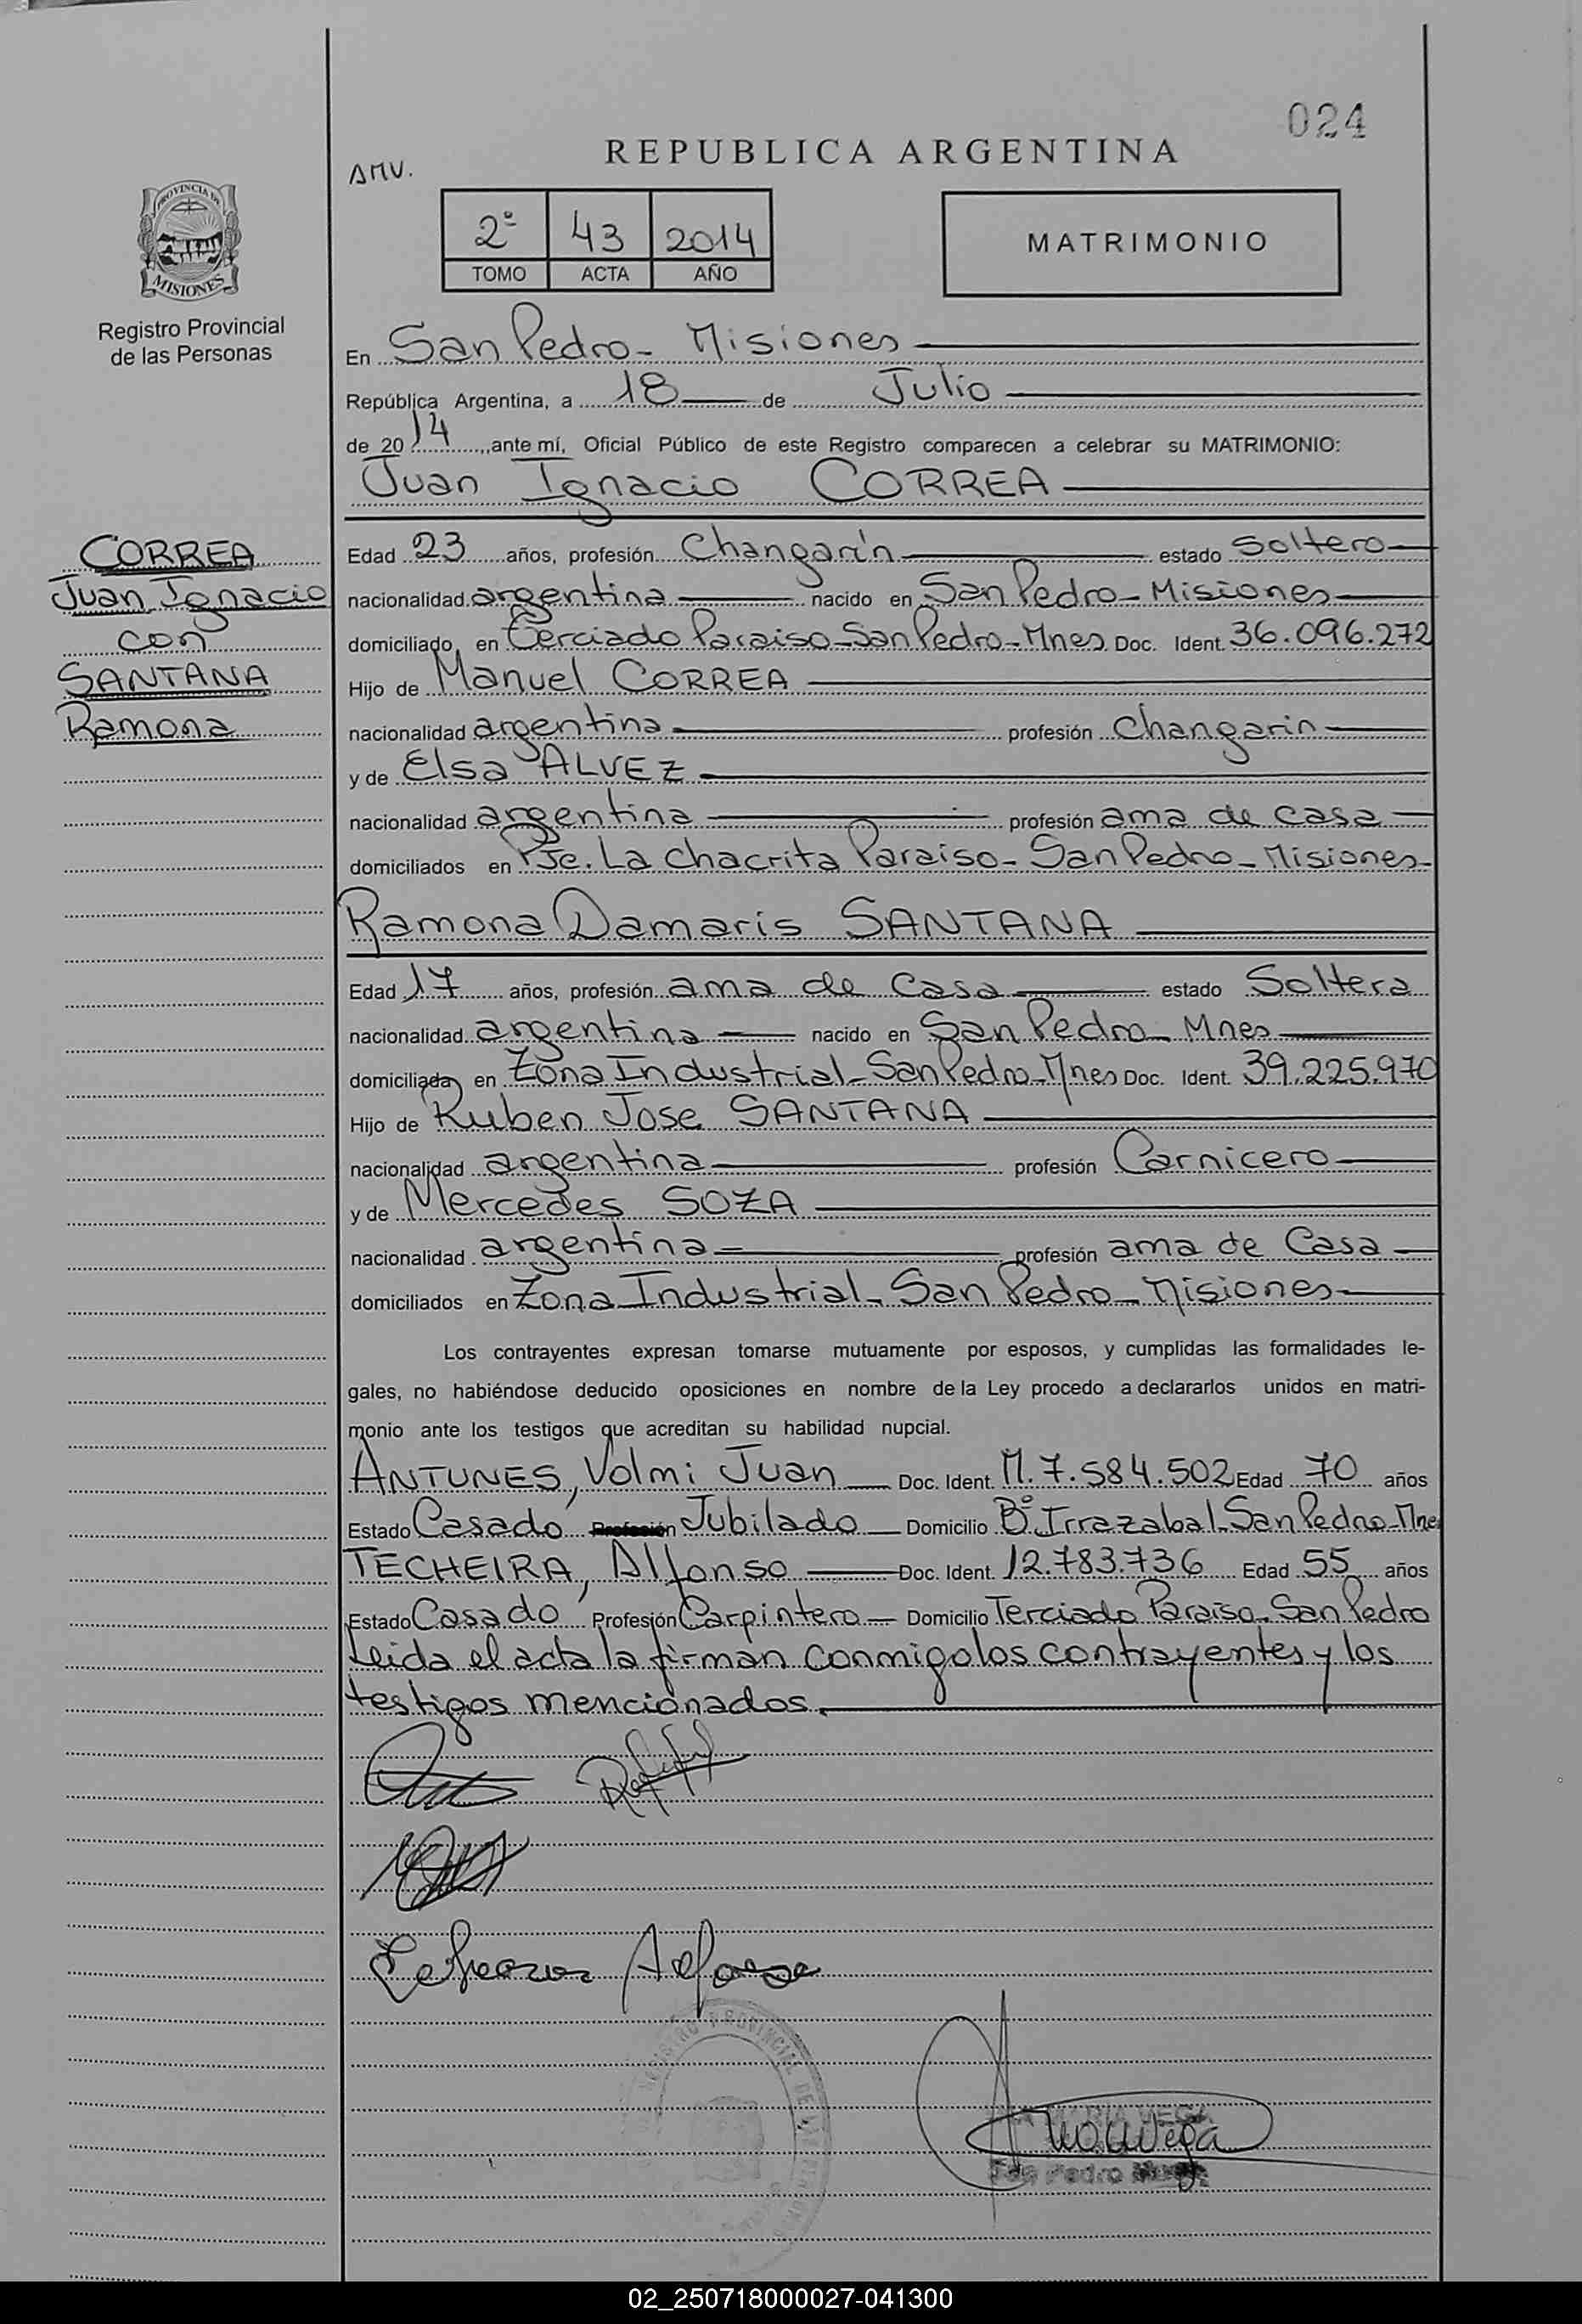 024
REPUBLICA ARGENTINA
AMV.
PROVINCIA DE
MISIONES
Registro Provincial
de las Personas
2º 43 2014
TOMO ACTA AÑO
MATRIMONIO
En San Pedro - Misiones
República Argentina, a 18 de Julio
de 2014, ante mí, Oficial Público de este Registro comparecen a celebrar su MATRIMONIO:
Juan Ignacio CORREA
CORREA
Juan Ignacio
con
SANTANA
Ramona
Edad 23 años, profesión Changarín estado Soltero
nacionalidad argentina nacido en San Pedro - Misiones
domiciliado en Terciado Paraiso - San Pedro - Mnes Doc. Ident. 36.096.272
Hijo de Manuel CORREA
nacionalidad argentina profesión Changarin
y de Elsa ALVEZ
nacionalidad argentina profesión ama de casa
domiciliados en Pje. La Chacrita Paraiso - San Pedro - Misiones
Ramona Damaris SANTANA
Edad 17 años, profesión ama de casa estado Soltera
nacionalidad argentina nacido en San Pedro - Mnes
domiciliada en Zona Industrial - San Pedro - Mnes Doc. Ident. 39.225.970
Hijo de Ruben Jose SANTANA
nacionalidad argentina profesión Carnicero
y de Mercedes SOZA
nacionalidad argentina profesión ama de Casa
domiciliados en Zona Industrial - San Pedro - Misiones
Los contrayentes expresan tomarse mutuamente por esposos, y cumplidas las formalidades le-
gales, no habiéndose deducido oposiciones en nombre de la Ley procedo a declararlos unidos en matri-
monio ante los testigos que acreditan su habilidad nupcial.
ANTUNES, Volmi Juan Doc. Ident. M. 7.584.502 Edad 70 años
Estado Casado Profesión Jubilado Domicilio Bº Irrazabal - San Pedro - Mnes
TECHEIRA, Alfonso Doc. Ident. 12.783.736 Edad 55 años
Estado Casado Profesión Carpintero Domicilio Terciado Paraiso - San Pedro
Leida el acta la firman conmigo los contrayentes y los
testigos mencionados.
REGISTRO PROVINCIAL DE LAS PERSONAS
MARIA VEGA
San Pedro
02_250718000027-041300